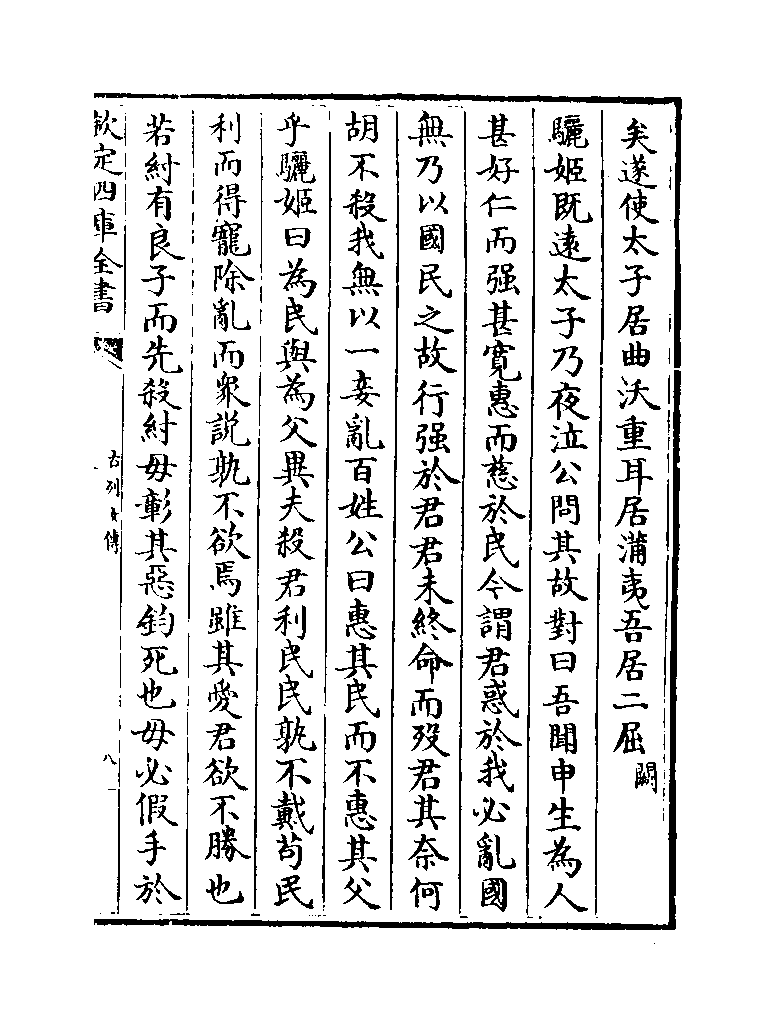 矣遂使太子居曲沃重耳居蒲夷吾居二屈闕
驪姬既遠太子乃夜泣公問其故對曰吾聞申生為人
甚好仁而强甚寛惠而慈於民今謂君惑於我必亂國
無乃以國民之故行强於君君未終命而殁君其奈何
胡不殺我無以一妾亂百姓公曰惠其民而不惠其父
乎驪姬曰為民與為父異夫殺君利民民孰不戴茍民
利而得寵除亂而衆説孰不欲焉雖其愛君欲不勝也
若紂有良子而先殺紂毋彰其惡鈞死也毋必假手於
欽定四庫全書
古列女傳
八